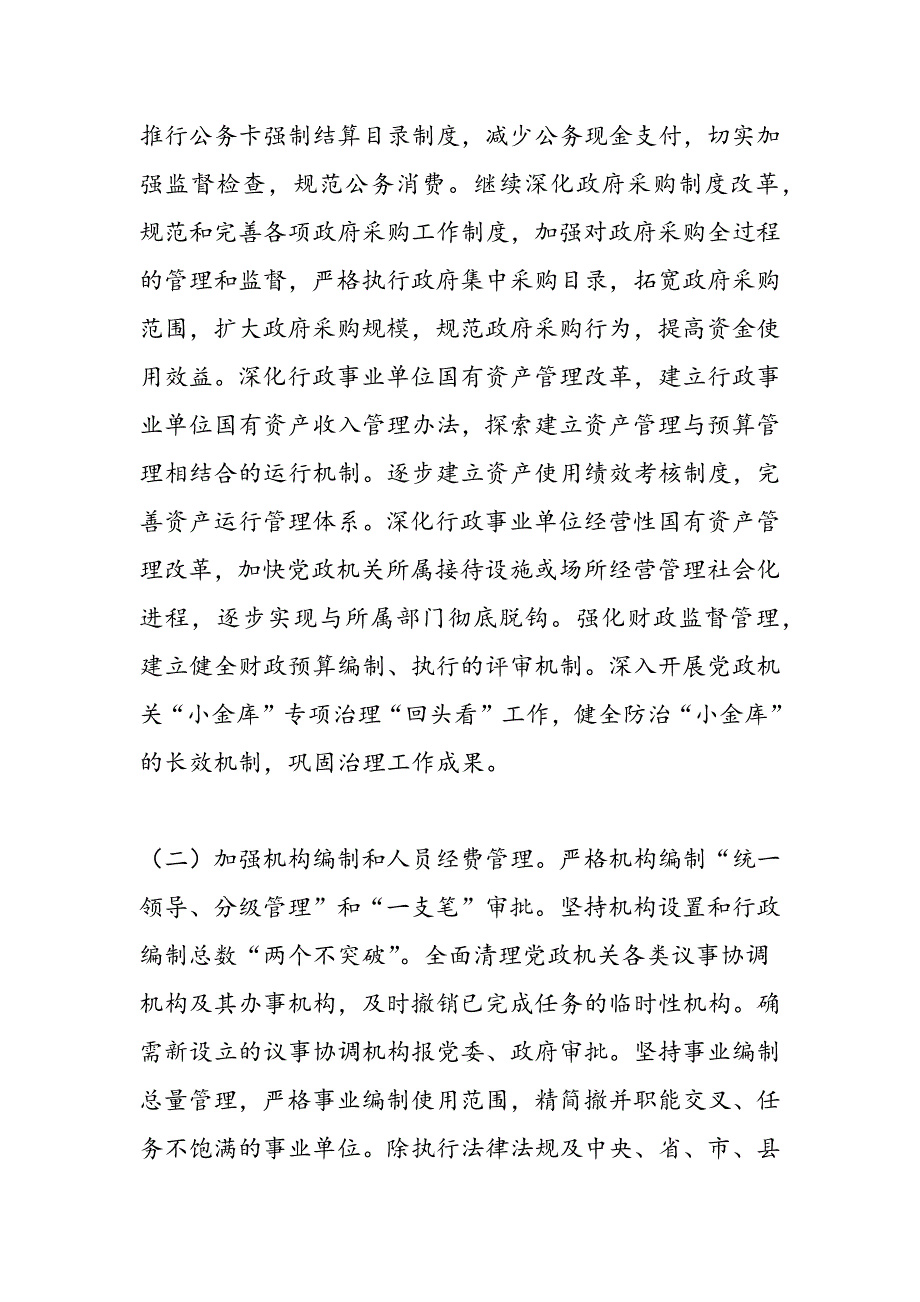 推行公务卡强制结算目录制度，减少公务现金支付，切实加
强监督检查，规范公务消费。继续深化政府采购制度改革，
规范和完善各项政府采购工作制度，加强对政府采购全过程
的管理和监督，严格执行政府集中采购目录，拓宽政府采购
范围，扩大政府采购规模，规范政府采购行为，提高资金使
用效益。深化行政事业单位国有资产管理改革，建立行政事
业单位国有资产收入管理办法，探索建立资产管理与预算管
理相结合的运行机制。逐步建立资产使用绩效考核制度，完
善资产运行管理体系。深化行政事业单位经营性国有资产管
理改革，加快党政机关所属接待设施或场所经营管理社会化
进程，逐步实现与所属部门彻底脱钩。强化财政监督管理，
建立健全财政预算编制、执行的评审机制。深入开展党政机
关“小金库”专项治理“回头看”工作，健全防治“小金库”
的长效机制，巩固治理工作成果。
（二）加强机构编制和人员经费管理。严格机构编制“统一
领导、分级管理”和“一支笔”审批。坚持机构设置和行政
编制总数“两个不突破”。全面清理党政机关各类议事协调
机构及其办事机构，及时撤销已完成任务的临时性机构。确
需新设立的议事协调机构报党委、政府审批。坚持事业编制
总量管理，严格事业编制使用范围，精简撤并职能交叉、任
务不饱满的事业单位。除执行法律法规及中央、省、市、县